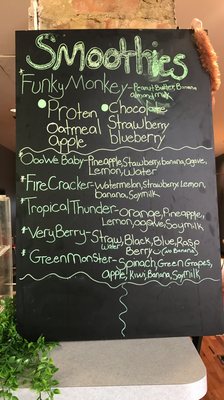 Smoothies
*Funky Monkey- Peanut Butter, Banana
almond milk
•Proten •Chocolate
Oatmeal Strawberry
apple blueberry
*Ooowe Baby- Pineapple, Stawberry, banana, Ogave,
Lemon, Water
*Fire Cracker- Watermelon, Strawberry, Lemon,
banana, Soymilk
*Tropical Thunder- Orange, Pineapple,
Lemon, agave, Soymilk
*Very Berry- Straw, Black, Blue, Rasp
Water Berry (no Banana)
*Green Monster- Spinach, Green Grapes,
apple, Kiwi, Banana, Soy Milk